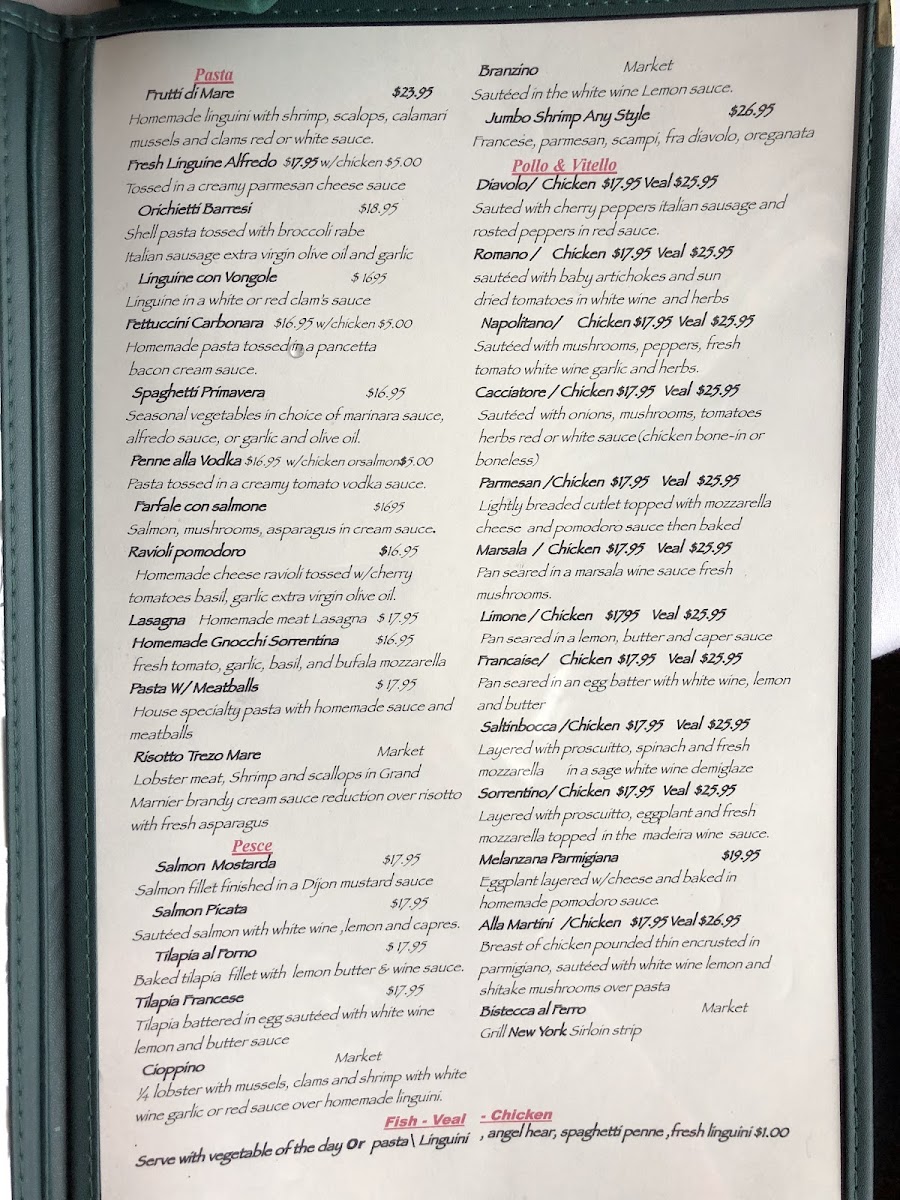 Pasta
Frutti di Mare $23.95
Homemade linguini with shrimp, scalops, calamari
mussels and clams red or white sauce.
Fresh Linguine Alfredo $17.95 w/chicken $5.00
Tossed in a creamy parmesan cheese sauce
Orichietti Barresi $18.95
Shell pasta tossed with broccoli rabe
Italian sausage extra virgin olive oil and garlic
Linguine con Vongole $ 1695
Linguine in a white or red clam's sauce
Fettuccini Carbonara $16.95 w/chicken $5.00
Homemade pasta tossed in a pancetta
bacon cream sauce.
Spaghetti Primavera $16.95
Seasonal vegetables in choice of marinara sauce,
alfredo sauce, or garlic and olive oil.
Penne alla Vodka $16.95 w/chicken orsalmon$5.00
Pasta tossed in a creamy tomato vodka sauce.
Farfale con salmone $1695
Salmon, mushrooms, asparagus in cream sauce.
Ravioli pomodoro $16.95
Homemade cheese ravioli tossed w/cherry
tomatoes basil, garlic extra virgin olive oil.
Lasagna Homemade meat Lasagna $ 17.95
Homemade Gnocchi Sorrentina $16.95
fresh tomato, garlic, basil, and bufala mozzarella
Pasta W/ Meatballs $ 17.95
House specialty pasta with homemade sauce and
meatballs
Risotto Trezo Mare Market
Lobster meat, Shrimp and scallops in Grand
Marnier brandy cream sauce reduction over risotto
with fresh asparagus
Pesce
Salmon Mostarda $17.95
Salmon fillet finished in a Dijon mustard sauce
Salmon Picata $17.95
Sautéed salmon with white wine ,lemon and capres.
Tilapia al Forno $ 17.95
Baked tilapia fillet with lemon butter & wine sauce.
Tilapia Francese $17.95
Tilapia battered in egg sautéed with white wine
lemon and butter sauce
Cioppino Market
¼ lobster with mussels, clams and shrimp with white
wine garlic or red sauce over homemade linguini.
Branzino Market
Sautéed in the white wine Lemon sauce.
Jumbo Shrimp Any Style $26.95
Francese, parmesan, scampi, fra diavolo, oreganata
Pollo & Vitello
Diavolo/ Chicken $17.95 Veal $25.95
Sauted with cherry peppers italian sausage and
rosted peppers in red sauce.
Romano / Chicken $17.95 Veal $25.95
sautéed with baby artichokes and sun
dried tomatoes in white wine and herbs
Napolitano/ Chicken $17.95 Veal $25.95
Sautéed with mushrooms, peppers, fresh
tomato white wine garlic and herbs.
Cacciatore / Chicken $17.95 Veal $25.95
Sautéed with onions, mushrooms, tomatoes
herbs red or white sauce (chicken bone-in or
boneless)
Parmesan /Chicken $17.95 Veal $25.95
Lightly breaded cutlet topped with mozzarella
cheese and pomodoro sauce then baked
Marsala / Chicken $17.95 Veal $25.95
Pan seared in a marsala wine sauce fresh
mushrooms.
Limone / Chicken $1795 Veal $25.95
Pan seared in a lemon, butter and caper sauce
Francaise/ Chicken $17.95 Veal $25.95
Pan seared in an egg batter with white wine, lemon
and butter
Saltinbocca /Chicken $17.95 Veal $25.95
Layered with proscuitto, spinach and fresh
mozzarella in a sage white wine demiglaze
Sorrentino/ Chicken $17.95 Veal $25.95
Layered with proscuitto, eggplant and fresh
mozzarella topped in the madeira wine sauce.
Melanzana Parmigiana $19.95
Eggplant layered w/cheese and baked in
homemade pomodoro sauce.
Alla Martini /Chicken $17.95 Veal $26.95
Breast of chicken pounded thin encrusted in
parmigiano, sautéed with white wine lemon and
shitake mushrooms over pasta
Bistecca al Ferro Market
Grill New York Sirloin strip
Fish - Veal - Chicken
Serve with vegetable of the day Or pasta\ Linguini , angel hear, spaghetti penne ,fresh linguini $1.00